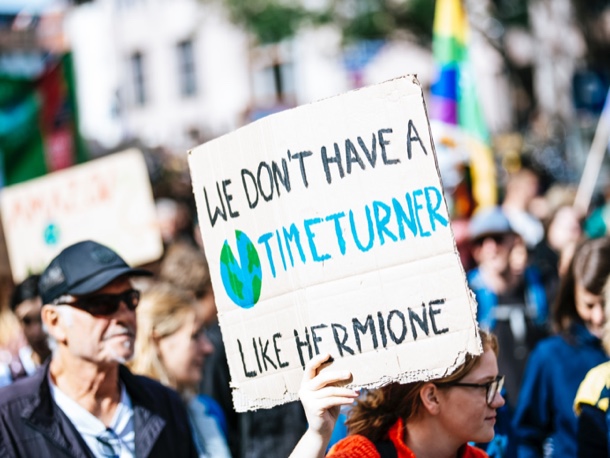 WE DON'T HAVE A
TIMETURNER
LIKE HERMIONE
AMAZON